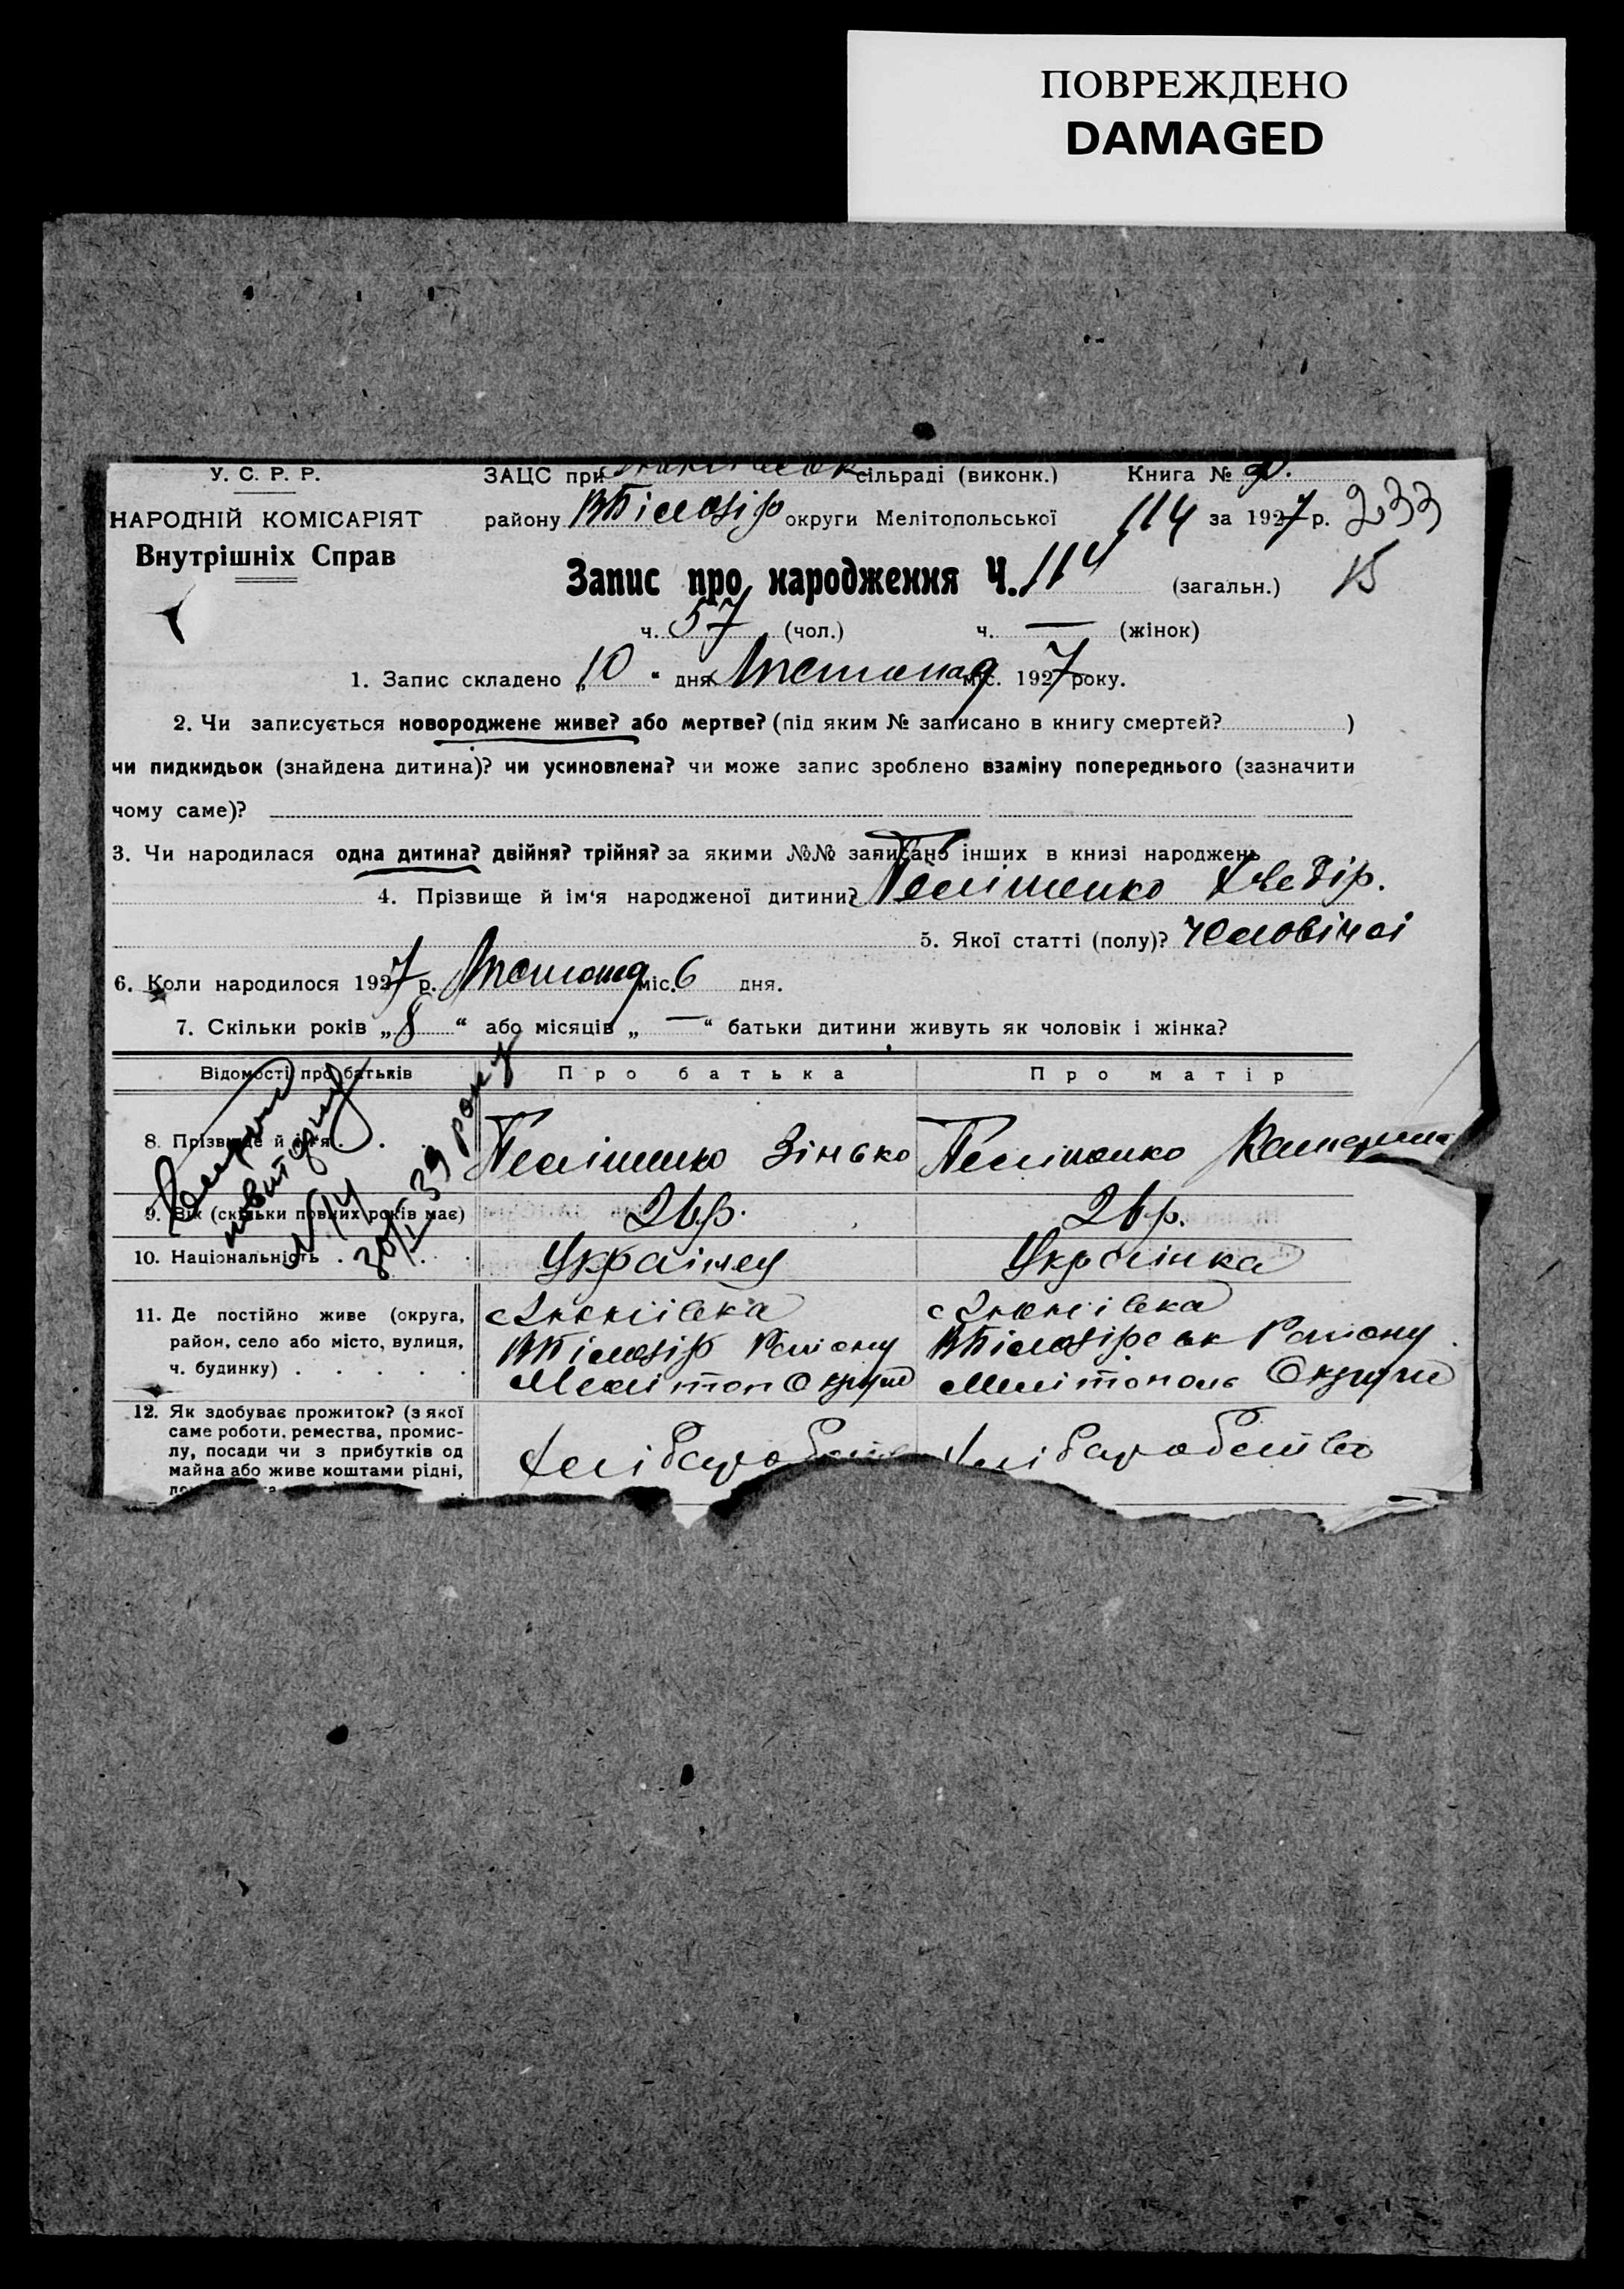 ПОВРЕЖДЕНО
DAMAGED
У. С. Р. Р.
НАРОДНІЙ КОМІСАРІЯТ
Внутрішніх Справ
ЗАЦС при сільраді (виконк.) Книга №
району округи Мелітопольської 114 за 1927 р. 233
Запис про народження Ч. 114 (загальн.) 15
ч. 57 (чол.) ч. — (жінок)
1. Запис складено „ 10 “ дня Листопад міс. 1927 року.
2. Чи записується новороджене живе? або мертве? (під яким № записано в книгу смертей? )
чи пидкидьок (знайдена дитина)? чи усиновлена? чи може запис зроблено взаміну попереднього (зазначити
чому саме)?
3. Чи народилася одна дитина? двійня? трійня? за якими №№ записано інших в книзі народжень
4. Прізвище й ім‘я народженої дитини? Федір.
5. Якої статті (полу)? Чоловічої
6. Коли народилося 1927 р. Листопад міс. 6 дня.
7. Скільки років „ 8 “ або місяців „ — “ батьки дитини живуть як чоловік і жінка?
Відомості про батьків Про батька Про матір
8. Прізвище й ім‘я Зінько Катерина
9. Вік (скільки повних років має) 26 р. 26 р.
10. Національність Українец Українка
11. Де постійно живе (округа,
район, село або місто, вулиця,
ч. будинку) Району Району
Мелітоп Округи Мелітополь Округи
12. Як здобуває прожиток? (з якої
саме роботи, ремества, промис-
лу, посади чи з прибутків од
майна або живе коштами рідні,
Хліборобство
39 року